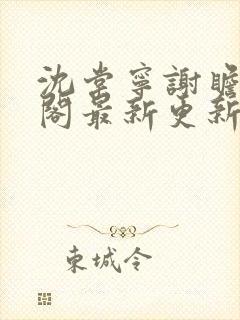 沈棠寧謝瞻
閣最新更新
東城令